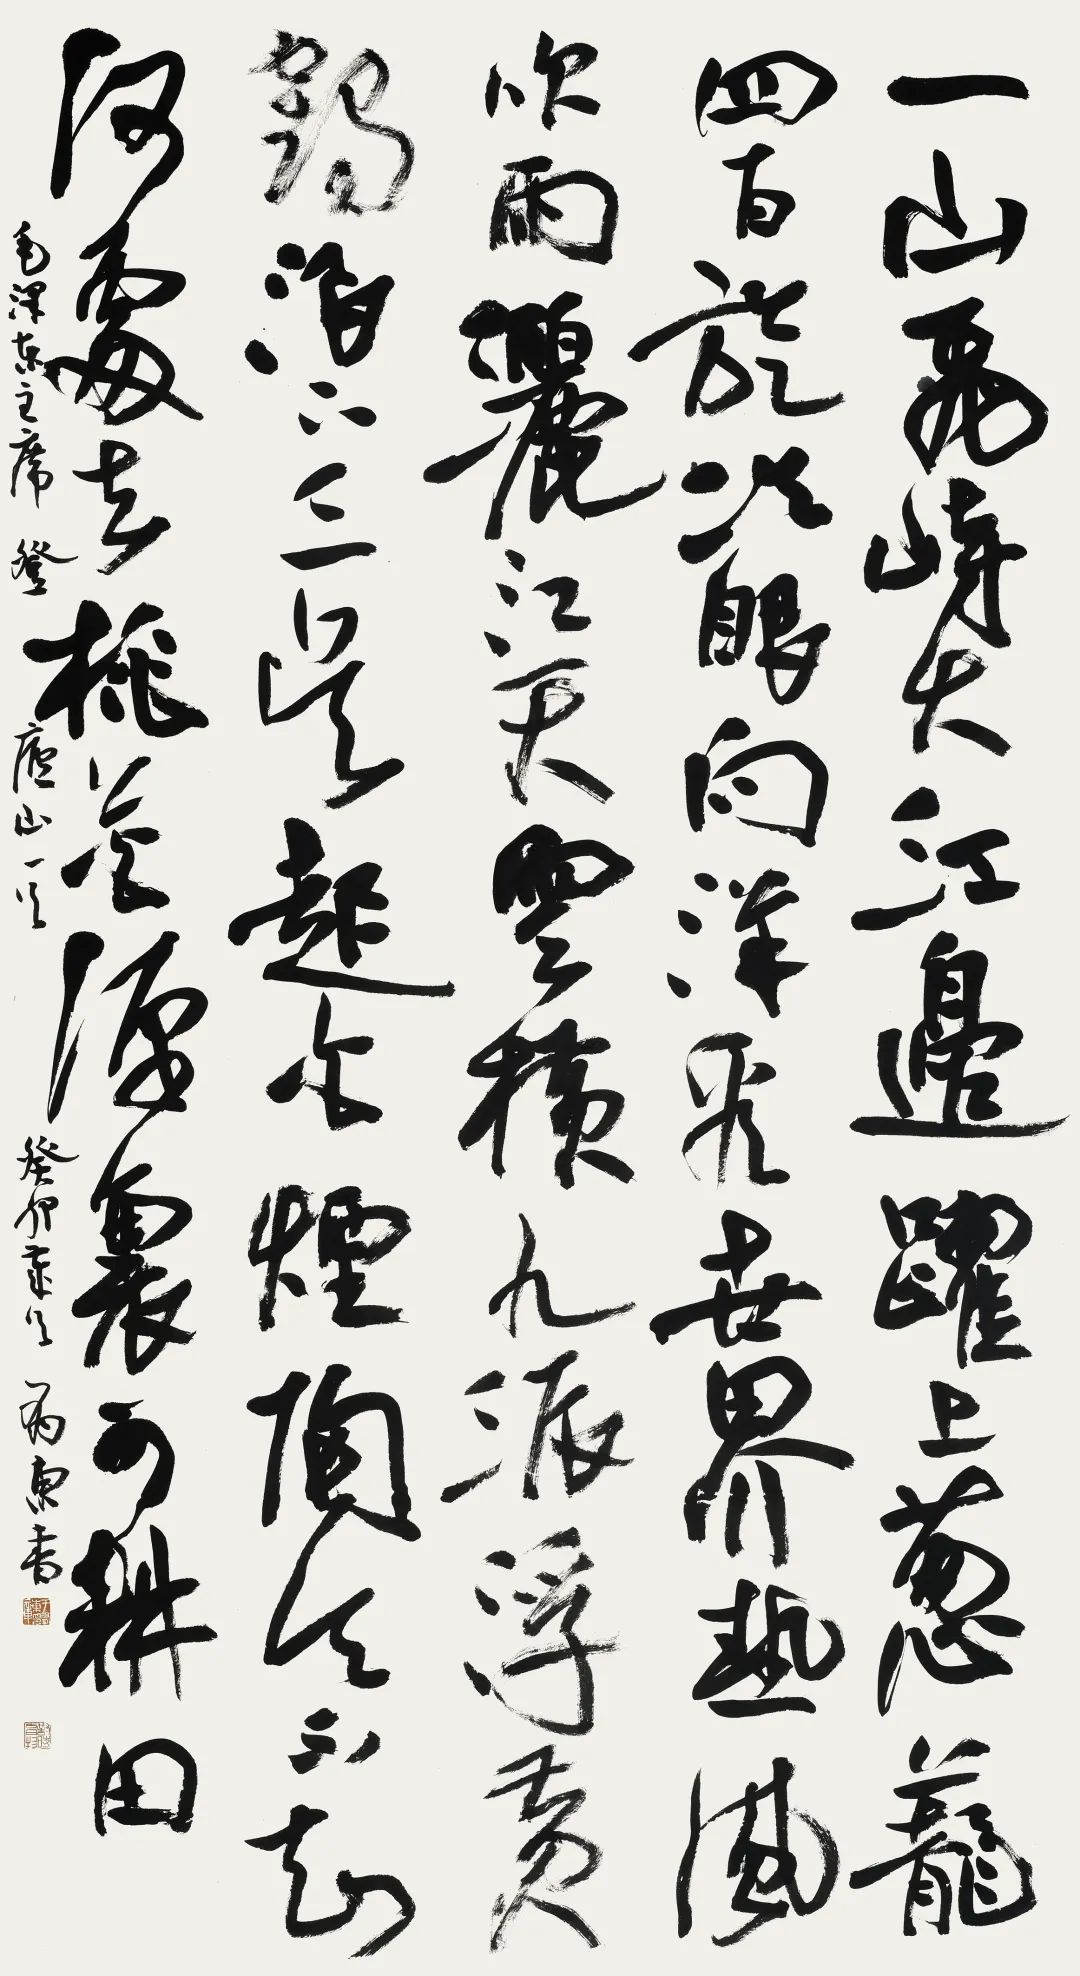 一山飛峙大江邊躍上葱蘢
四百旋冷眼向洋看世界熱風
吹雨灑江天雲橫九派浮黄
鶴浪下三吳起白煙陶令不知
何處去桃花源裏可耕田
毛澤東主席登廬山一首癸卯東書